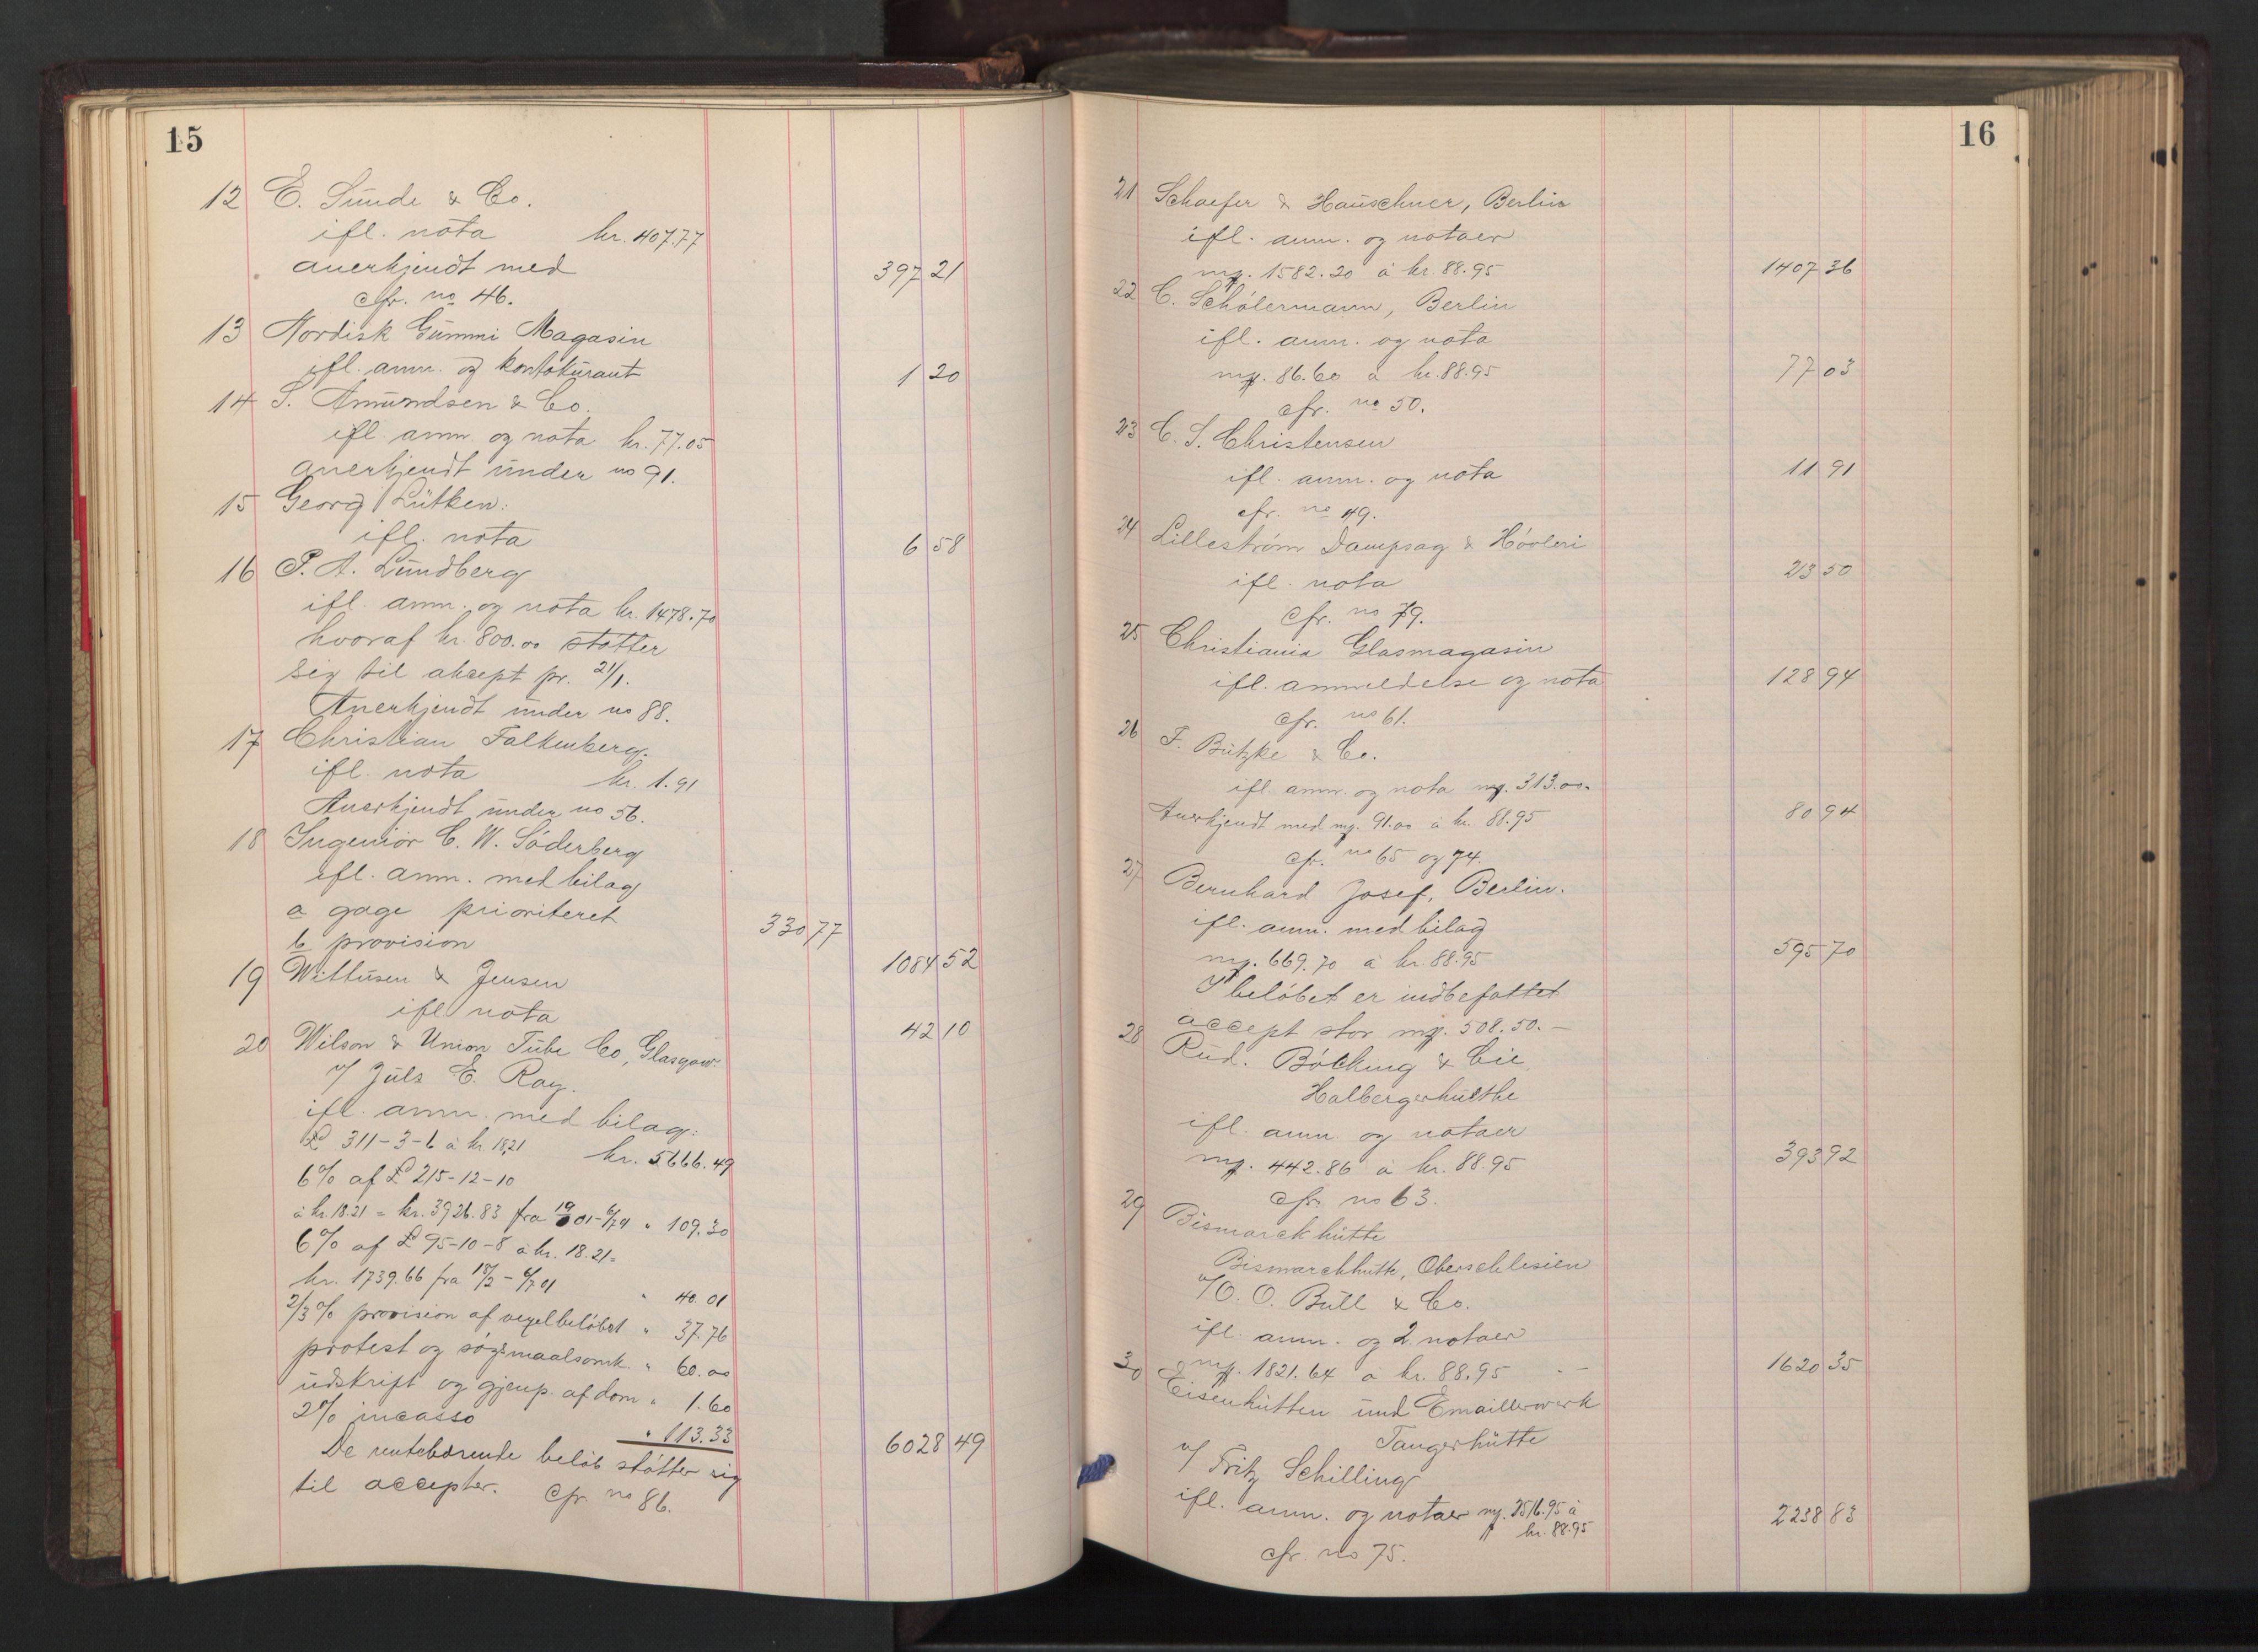 15
12 E. Sunde & Co.
ifl. nota kr. 407.77
anerkjendt med 397 21
cfr. no 46.
13 Nordisk Gummi Magasin
ifl. anm. og kontokurant 1 20
14 S. Amundsen & Co.
ifl. anm. og nota kr. 77.05
anerkjendt under no 91.
15 Georg Lütken:
ifl. nota 6 58
16 P. A. Lundberg
ifl. anm. og nota kr. 1478.70
hvoraf kr. 800.00 støtter
sig til aksept pr. 21/1.
Anerkjendt under no 88.
17 Christian Falkenberg.
ifl. nota kr. 1.91
Anerkjendt under no 56.
18 Ingeniør C. W. Söderberg
ifl. anm. med bilag
a gage prioriteret 330 77
b provision 1084 52
19 Withusen & Jensen
ifl nota 42 10
20 Wilson & Union Tube Co, Glasgow.
v/ Juls E. Roy.
ifl. anm. med bilag:
£ 311-3-6 à kr. 18,21 kr. 5666.49
6% af £ 215-12-10
à kr. 18.21 = kr. 3926.83 fra " 109.30
6% af £ 95-10-8 à kr. 18.21 =
kr. 1739.66 fra " 40.01
2/3% provision af vexelbeløbet " 37.76
protest og søgsmaalsomk. " 60.00
udskrift og gjenp. af dom " 1.60
2% incasso " 113.33
De rentebærende beløb støtter sig 6028 49
til accepter. Cfr. no 86.
16
21 Schaefer & Hauschner, Berlin
ifl. anm. og notaer
mk. 1582.20 à kr. 88.95 1407 36
22 C. Schölermann, Berlin
ifl. anm. og nota
mk. 86.60 à kr. 88.95 77 03
cfr. no 50.
23 C. S. Christensen
ifl. anm. og nota 11 91
cfr. no 49.
24 Lillestrøm Dampsag & Høvleri
ifl. nota 213 50
cfr. no 79.
25 Christiania Glasmagasin
ifl. anmeldelse og nota 128 94
cfr. no 61.
26 F. Butzke & Co.
ifl. anm. og nota mk. 313.00.
Anerkjendt med mk. 91.00 à kr. 88.95 80 94
cfr. no 65 og 74.
27 Bernhard Josef, Berlin.
ifl. anm. med bilag
mk. 669.70 à kr. 88.95 595 70
I beløbet er indbefattet
accept stor mk. 508.50. —
28 Rud. Böcking & Cie,
Halbergerhütthe
ifl. anm. og notaer
mk. 442.86 à kr. 88.95 393 92
cfr. no 63.
29 Bismarckhütte
Bismarckhütte, Oberschlesien
v/ O. O. Bull & Co.
ifl. anm. og 2 notaer
mk. 1821.64 à kr. 88.95 1620 35
30 Eisenhütten und Emaillerwerk
Tangerhütte
v/ Fritz Schilling
ifl. anm. og notaer mk. 2516.95 à
kr. 88.95 2238 83
cfr. no 75.